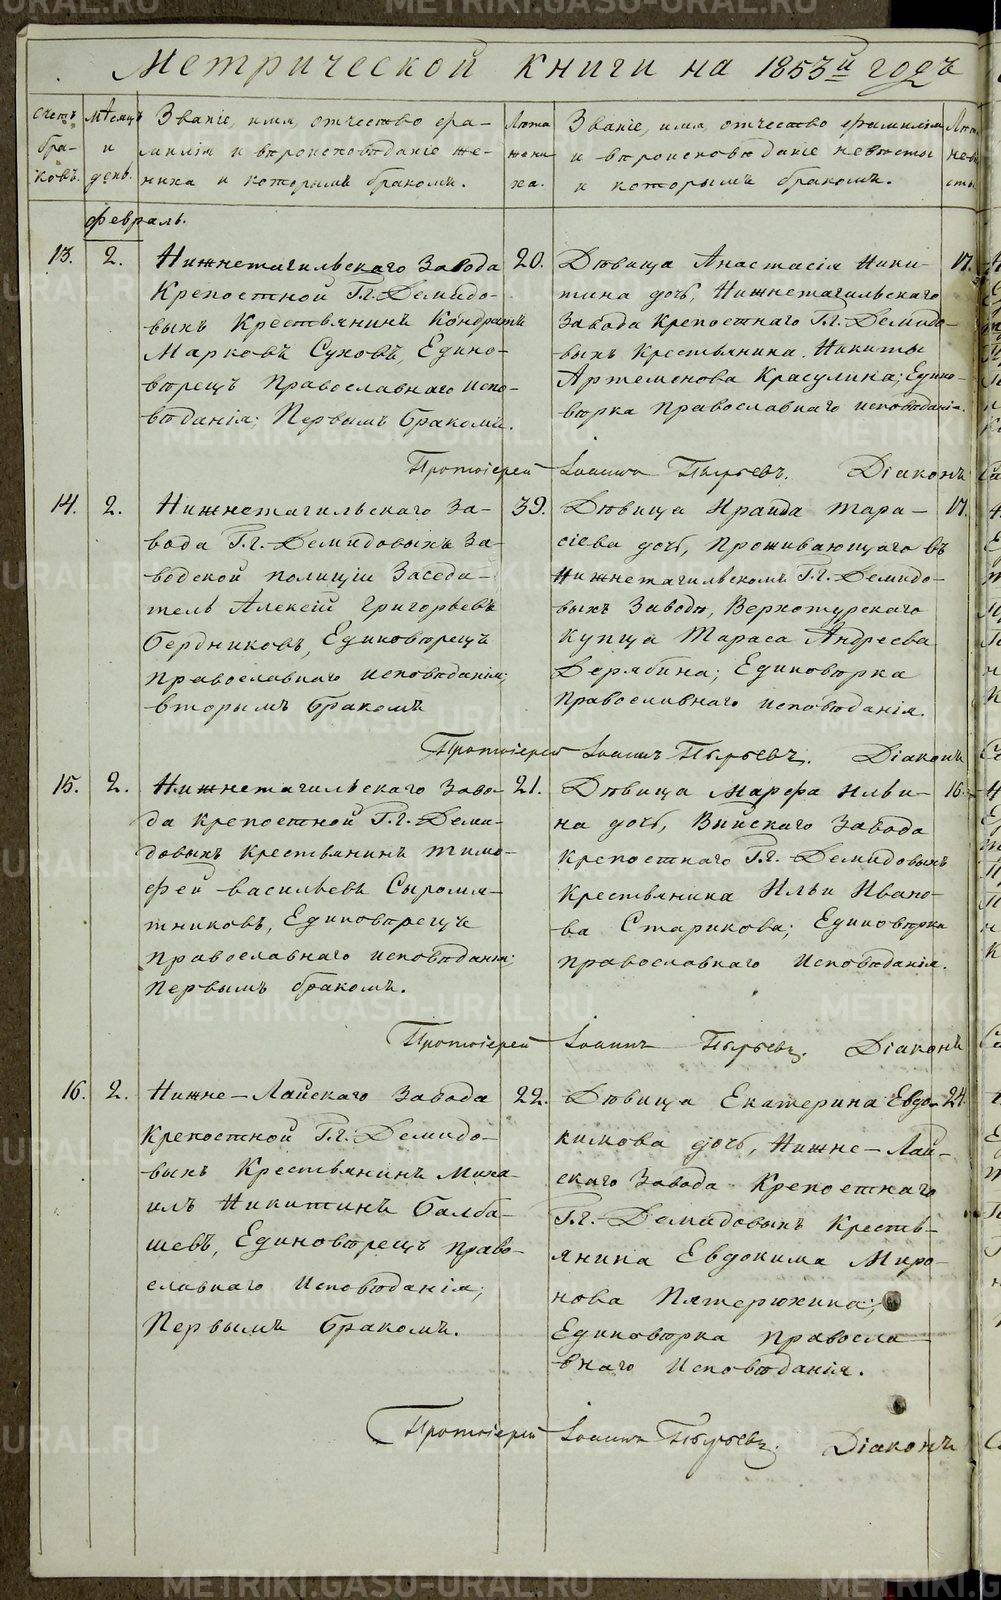 Метрической книги на 1853й годъ
Счетъ браковъ.
Мѣсяцъ и день.
Званіе, имя, отчество, фа-
милія и вѣроисповѣданіе же-
ниха и которымъ бракомъ.
Лѣта жениха.
Званіе, имя, отчество фамилія
и вѣроисповѣданіе невѣсты
и которымъ бракомъ.
Февраль.
13. 2.
Нижнетагильскаго Завода
Крепостной Г.г. Демидо-
выхъ Крестьянинъ Кондратъ
Марковъ Суховъ, Едино-
вѣрецъ Православнаго Испо-
вѣданія; Первымъ бракомъ.
20.
Дѣвица Анастасія Ники-
тина дочь, Нижнетагильскаго
Завода Крепостнаго Г.г. Демидо-
выхъ Крестьянина Никиты
Артемонова Красулина; Едино-
вѣрка Православнаго исповѣданія.
17.
Протоіерей Іоаннъ Пырьевъ. Діаконъ
14. 2.
Нижнетагильскаго За-
вода Г.г. Демидовыхъ За-
водской полиціи Заседа-
тель Алексій Григорьевъ
Бердниковъ, Единовѣрецъ
Православнаго исповѣданія;
вторымъ бракомъ
39.
Дѣвица Ираида Тара-
сіева дочь, Проживающаго въ
Нижнетагильскомъ Г.г. Демидо-
выхъ Заводѣ, Верхотурскаго
Купца Тараса Андреева
Дерябина; Единовѣрка
Православнаго исповѣданія.
17.
Протоіерей Іоаннъ Пырьевъ. Діаконъ
15. 2.
Нижнетагильскаго Заво-
да Крепостной Г.г. Деми-
довыхъ Крестьянинъ Тимо-
фей Васильевъ Сыромя-
тниковъ, Единовѣрецъ
Православнаго исповѣданія;
Первымъ бракомъ.
21.
Дѣвица Марфа Ильи-
на дочь, Выйскаго Завода
Крепостнаго Г.г. Демидовыхъ
Крестьянина Ильи Ивано-
ва Старикова; Единовѣрка
православнаго Исповѣданія.
16.
Протоіерей Іоаннъ Пырьевъ. Діаконъ
16. 2.
Нижне-Лайскаго Завода
Крепостной Г.г. Демидо-
выхъ Крестьянинъ Миха-
илъ Никитинъ Балба-
шевъ, Единовѣрецъ Право-
славнаго Исповѣданія;
Первымъ бракомъ.
22.
Дѣвица Екатерина Евдо-
кимова дочь, Нижне-Лай-
скаго Завода Крепостнаго
Г.г. Демидовыхъ Кресть-
янина Евдокима Миро-
нова Пятерюхина;
Единовѣрка Правосла-
внаго Исповѣданія.
24.
Протоіерей Іоаннъ Пырьевъ. Діаконъ
METRIKI.GASO-URAL.RU